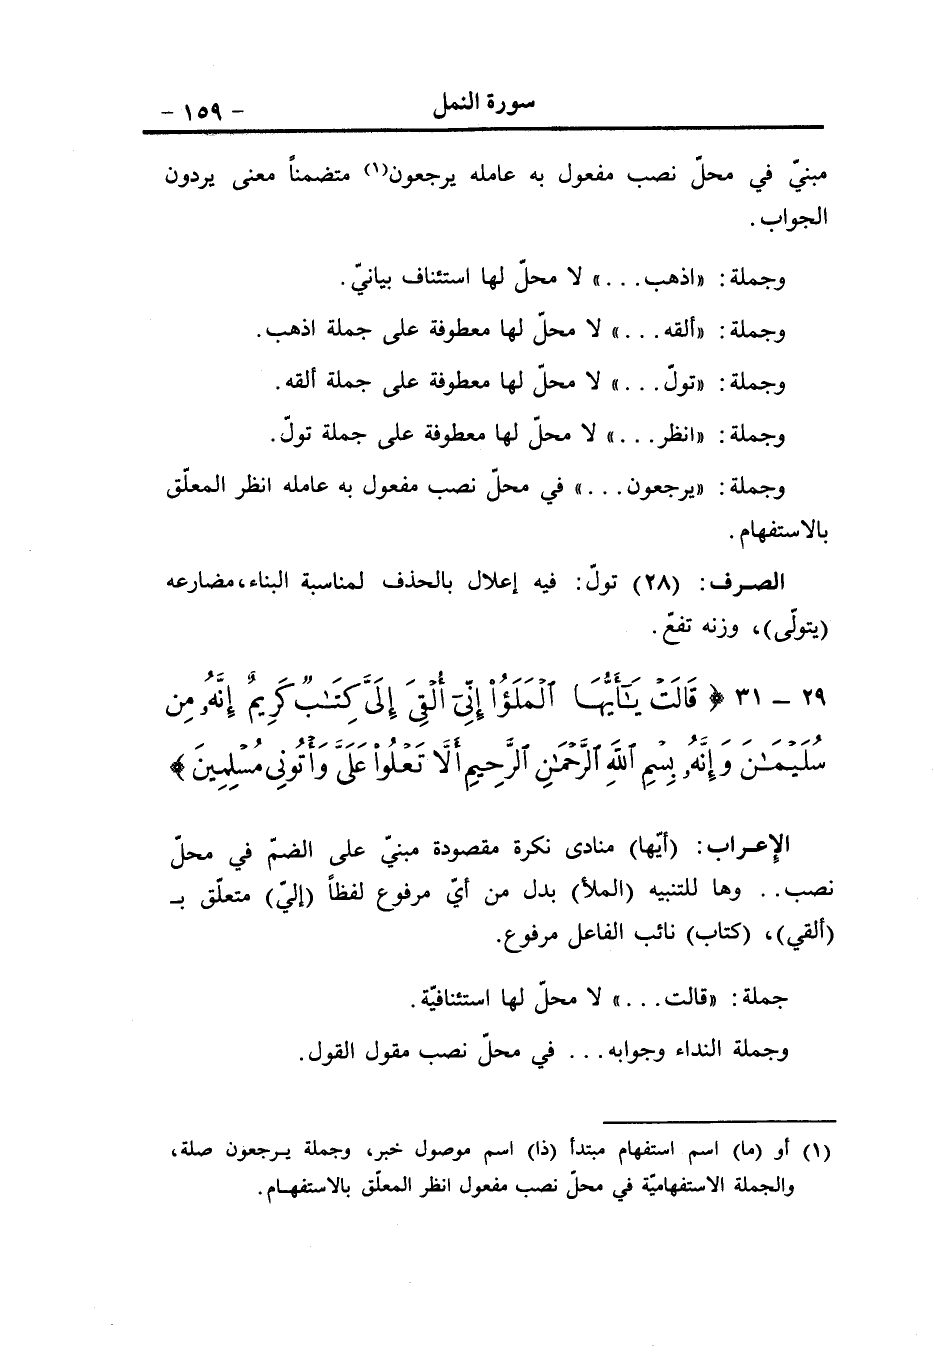 سورة النمل - ١٥٩ -
مبنيّ في محلّ نصب مفعول به عامله يرجعون(١) متضمناً معنى يردون
الجواب.
وجملة: «اذهب...» لا محلّ لها استئناف بيانيّ.
وجملة: «ألقه...» لا محلّ لها معطوفة على جملة اذهب.
وجملة: «تولّ...» لا محلّ لها معطوفة على جملة ألقه.
وجملة: «انظر...» لا محلّ لها معطوفة على جملة تولّ.
وجملة: «يرجعون...» في محلّ نصب مفعول به عامله انظر المعلّق
بالاستفهام.
الصرف: (٢٨) تولّ: فيه إعلال بالحذف لمناسبة البناء، مضارعه
(يتولّى)، وزنه تفعّ.
٢٩ - ٣١ ﴿ قَالَتْ يَٰٓأَيُّهَا ٱلْمَلَؤُا۟ إِنِّىٓ أُلْقِىَ إِلَىَّ كِتَٰبٌ كَرِيمٌ إِنَّهُۥ مِن
سُلَيْمَٰنَ وَإِنَّهُۥ بِسْمِ ٱللَّهِ ٱلرَّحْمَٰنِ ٱلرَّحِيمِ أَلَّا تَعْلُوا۟ عَلَىَّ وَأْتُونِى مُسْلِمِينَ ﴾
الإعراب: (أيّها) منادى نكرة مقصودة مبنيّ على الضمّ في محلّ
نصب.. وها للتنبيه (الملأ) بدل من أيّ مرفوع لفظاً (إليّ) متعلّق بـ
(ألقي)، (كتاب) نائب الفاعل مرفوع.
جملة: «قالت...» لا محلّ لها استئنافيّة.
وجملة النداء وجوابه... في محلّ نصب مقول القول.
(١) أو (ما) اسم استفهام مبتدأ (ذا) اسم موصول خبر، وجملة يرجعون صلة،
والجملة الاستفهاميّة في محلّ نصب مفعول انظر المعلّق بالاستفهام.